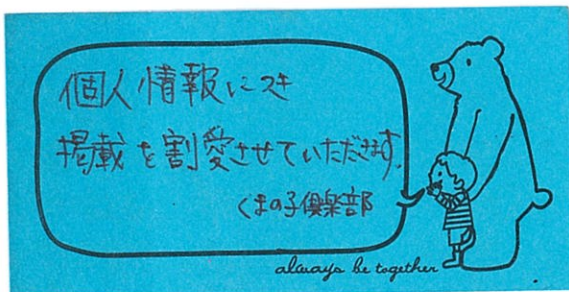 個人情報につき
掲載を割愛させていただきます。
くまの子倶楽部
always be together